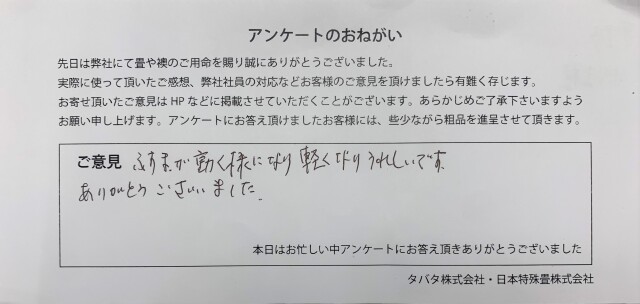 アンケートのおねがい
先日は弊社にて畳や襖のご用命を賜り誠にありがとうございました。
実際に使って頂いたご感想、弊社社員の対応などお客様のご意見を頂けましたら有難く存じます。
お寄せ頂いたご意見は HP などに掲載させていただくことがございます。あらかじめご了承下さいますよう
お願い申し上げます。アンケートにお答え頂けましたお客様には、些少ながら粗品を進呈させて頂きます。
ご意見 ふすまが動く様になり軽くなりうれしいです
ありがとうございました。
本日はお忙しい中アンケートにお答え頂きありがとうございました
タバタ株式会社・日本特殊畳株式会社